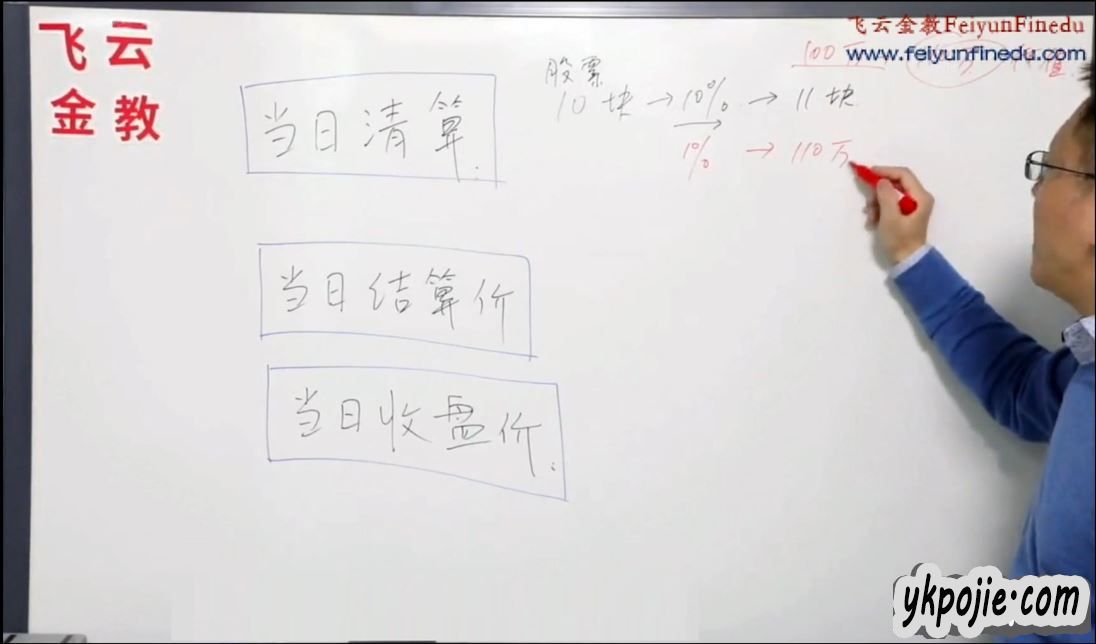 飞云
金教
飞云金教FeiyunFinedu
www.feiyunfinedu.com
100万
值
股票
10块→10%→11块
1%→110万
当日清算.
当日结算价
当日收盘价.
ykpojie.com